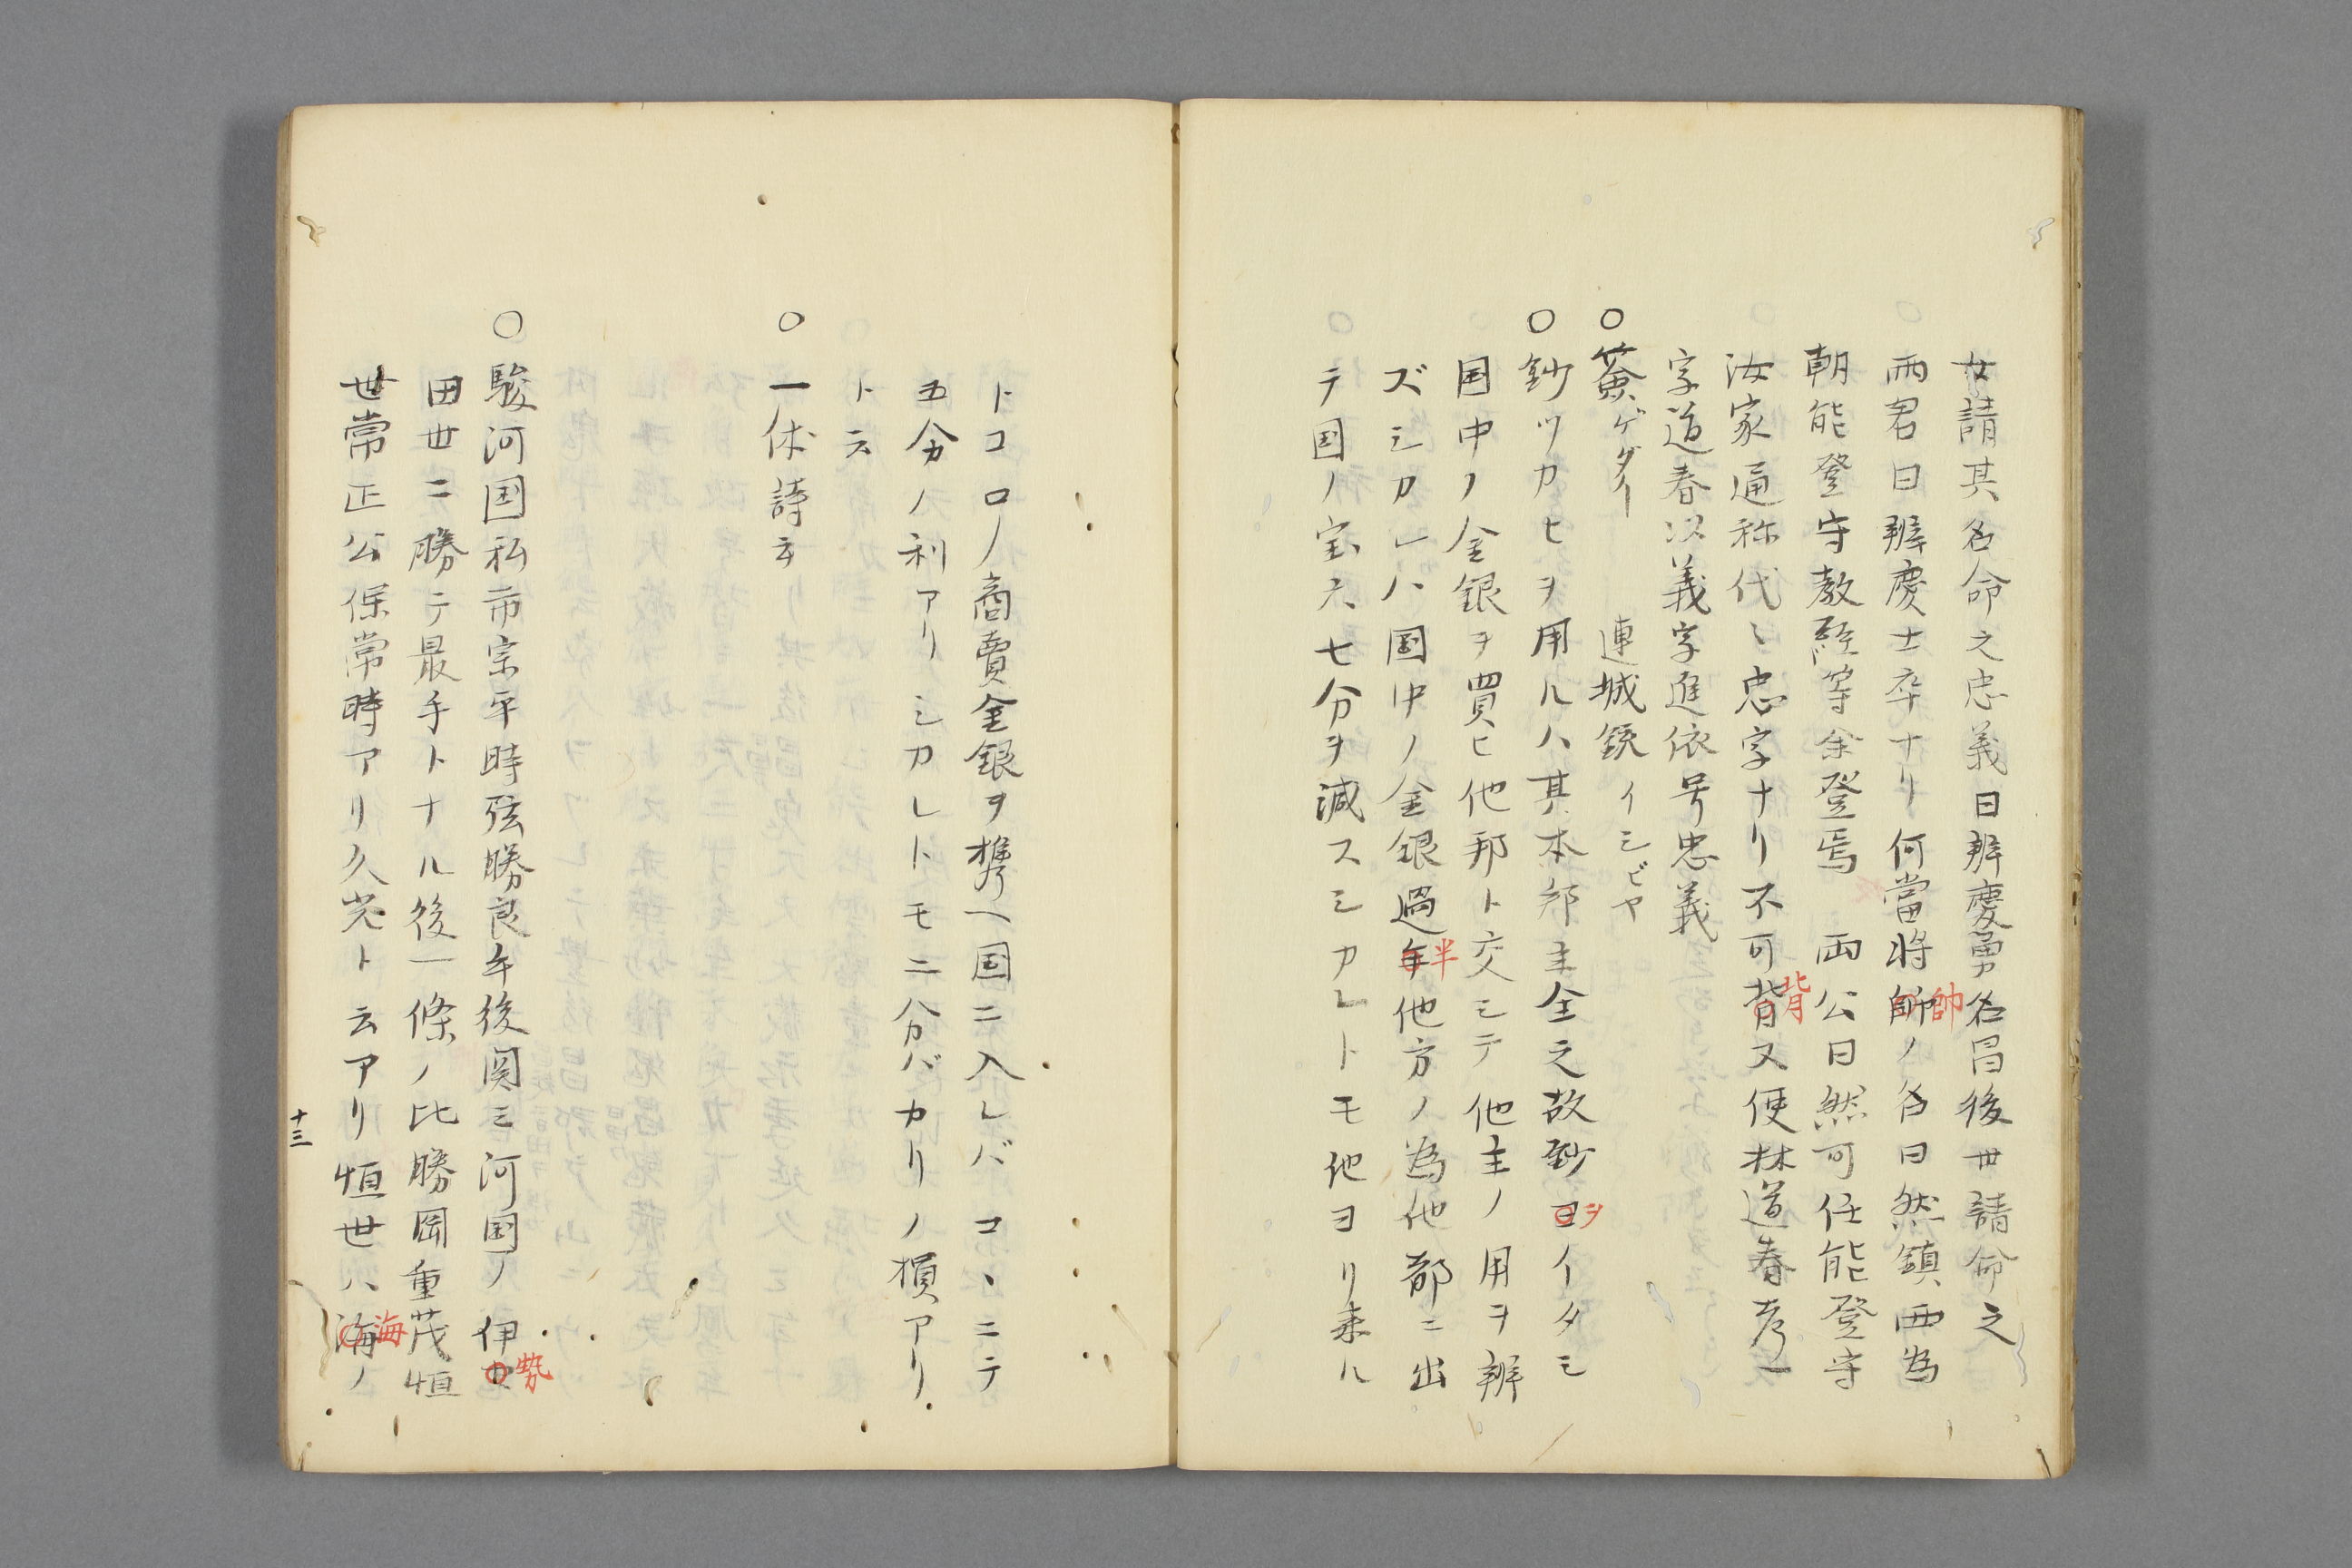 女請其名命之忠義曰辨慶勇名昌後世請命之
両君曰辨慶士卒ナリ何當将師帥ノ名曰然鎮西為
朝能登守教經等余登焉　両公曰然可任能登守
汝家通称代ミ忠字ナリ不可背背又使林道春考一
字道春以義字進依号忠義
○ゲダイ　連城銃イシビヤ
○鈔ツカヒヲ用ルハ其本邦主全之故鈔ヨヲイタシ
国中ノ金銀ヲ買ヒ他邦ト交シテ他主ノ用ヲ辨
ズシカレハ国中ノ金銀過年半他方ノ為他都ニ出
テ国ノ宝六七分ヲ減スシカレトモ他ヨリ来ル
トコロノ商賣金銀ヲ携ヘ国ニ入レバコヽニテ
五分ノ利アリシカレトモニ分バカリノ損アリ
トス
○一休詩云
○駿河国私市宗平時弦勝良午後関ミ河国ノ伊勢
田世ニ勝テ最手トナル後一條ノ比勝岡重茂恒
世常正公保常時アリ久光ト云アリ恒世ハ海海ノ
十三